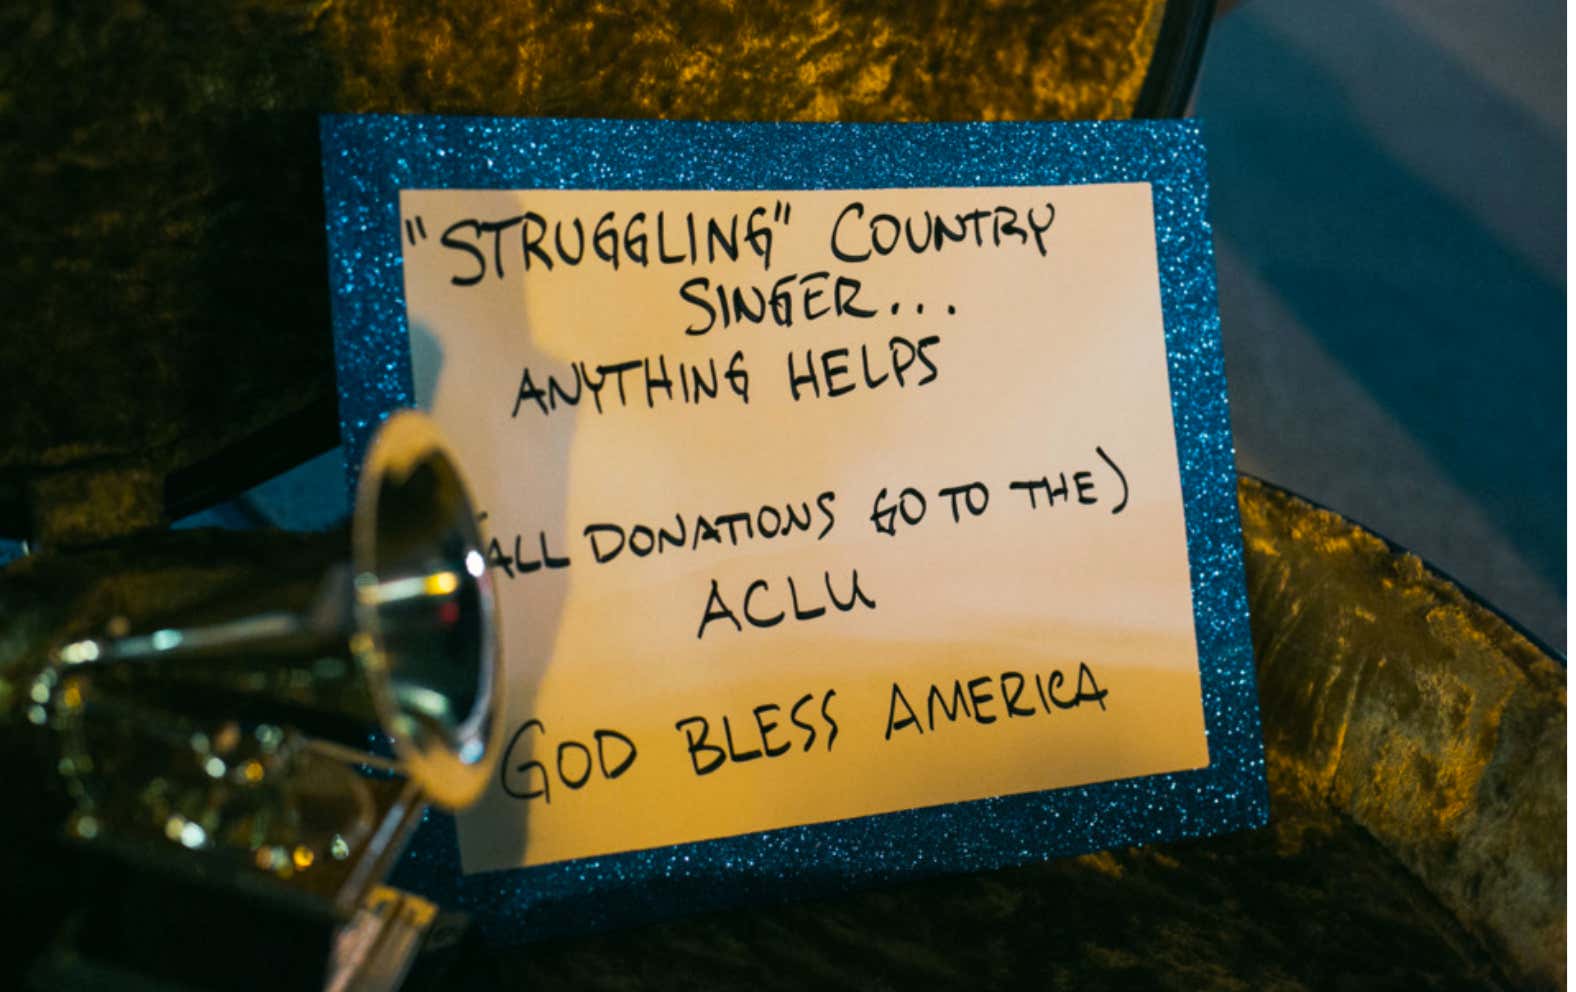 "STRUGGLING" COUNTRY
SINGER...
ANYTHING HELPS
(ALL DONATIONS GO TO THE)
ACLU
GOD BLESS AMERICA